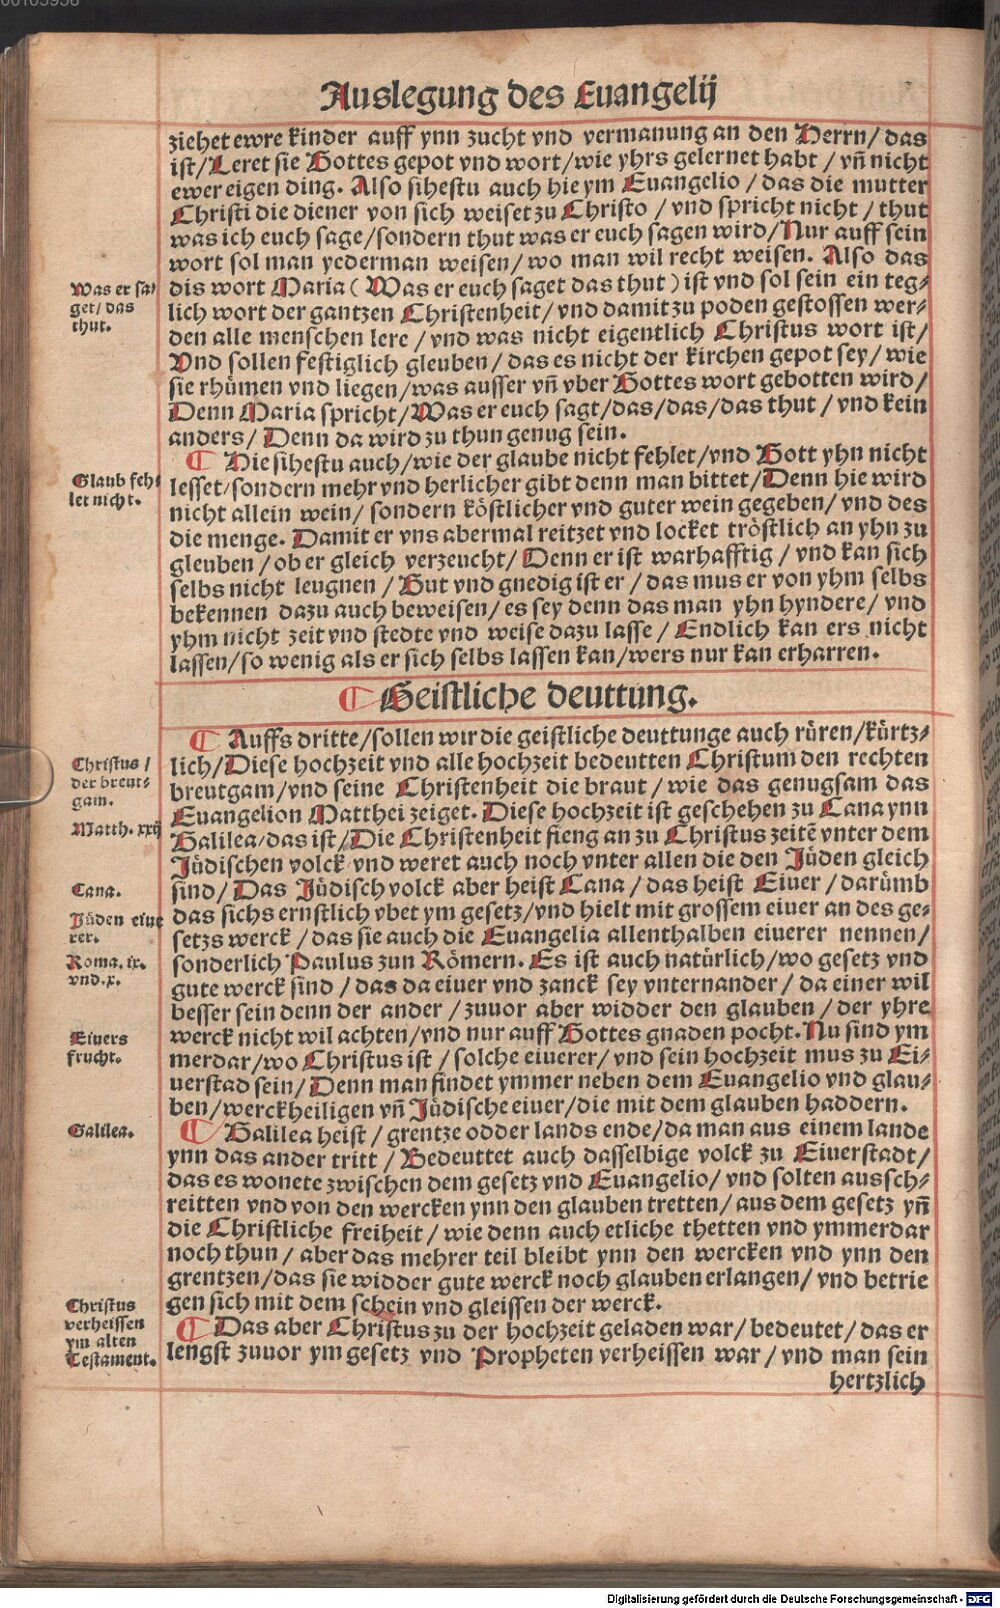 Auslegung des Euangelij
ziehet ewre kinder auff ynn zucht vnd vermanung an den Herrn/ das
ist/ Leret sie Gottes gepot vnd wort/ wie yhrs gelernet habt / vn̄ nicht
ewer eigen ding. Also sihestu auch hie ym Euangelio / das die mutter
Christi die diener von sich weiset zu Christo / vnd spricht nicht / thut
was ich euch sage/ sondern thut was er euch sagen wird/ Nur auff sein
wort sol man yederman weisen/ wo man wil recht weisen. Also das
dis wort Maria ( Was er euch saget das thut ) ist vnd sol sein ein teg-
lich wort der gantzen Christenheit/ vnd damit zu poden gestossen wer-
den alle menschen lere / vnd was nicht eigentlich Christus wort ist/
Vnd sollen festiglich gleuben / das es nicht der kirchen gepot sey/ wie
sie rhůmen vnd liegen/ was ausser vn̄ vber Gottes wort gebotten wird/
Denn Maria spricht/ Was er euch sagt/ das/ das/ das thut / vnd kein
anders/ Denn da wird zu thun genug sein.
Was er sa-
get/ das
thut.
¶ Hie sihestu auch/ wie der glaube nicht fehlet/ vnd Gott yhn nicht
lesset/ sondern mehr vnd herlicher gibt denn man bittet/ Denn hie wird
nicht allein wein/ sondern köstlicher vnd guter wein gegeben/ vnd des
die menge. Damit er vns abermal reitzet vnd locket tröstlich an yhn zu
gleuben / ob er gleich verzeucht/ Denn er ist warhafftig / vnd kan sich
selbs nicht leugnen / Gut vnd gnedig ist er / das mus er von yhm selbs
bekennen dazu auch beweisen/ es sey denn das man yhn hyndere/ vnd
yhm nicht zeit vnd stedte vnd weise dazu lasse / Endlich kan ers nicht
lassen/ so wenig als er sich selbs lassen kan/ wers nur kan erharren.
Glaub feh-
let nicht.
¶ Geistliche deuttung.
¶ Auffs dritte/ sollen wir die geistliche deuttunge auch růren/ kürtz-
lich/ Diese hochzeit vnd alle hochzeit bedeutten Christum den rechten
breutgam/ vnd seine Christenheit die braut / wie das genugsam das
Euangelion Matthei zeiget. Diese hochzeit ist geschehen zu Cana ynn
Galilea/ das ist/ Die Christenheit fieng an zu Christus zeitē vnter dem
Jüdischen volck vnd weret auch noch vnter allen die den Jüden gleich
sind/ Das Jüdisch volck aber heist Cana / das heist Eiuer / darůmb
das sichs ernstlich vbet ym gesetz/ vnd hielt mit grossem eiuer an des ge-
setzs werck / das sie auch die Euangelia allenthalben eiuerer nennen/
sonderlich Paulus zun Römern. Es ist auch natürlich/ wo gesetz vnd
gute werck sind / das da eiuer vnd zanck sey vnternander / da einer wil
besser sein denn der ander / zuuor aber widder den glauben / der yhre
werck nicht wil achten/ vnd nur auff Gottes gnaden pocht. Nu sind ym
merdar/ wo Christus ist / solche eiuerer/ vnd sein hochzeit mus zu Ei-
uerstad sein/ Denn man findet ymmer neben dem Euangelio vnd glau-
ben/ werckheiligen vn̄ Jüdische eiuer/ die mit dem glauben haddern.
Christus /
der breut-
gam.
Matth. xxij
Cana.
Jüden eiue
rer.
Roma. ix.
vnd. x.
Eiuers
frucht.
¶ Galilea heist / grentze odder lands ende/ da man aus einem lande
ynn das ander tritt / Bedeuttet auch dasselbige volck zu Eiuerstadt/
das es wonete zwischen dem gesetz vnd Euangelio/ vnd solten aussch-
reitten vnd von den wercken ynn den glauben tretten/ aus dem gesetz yn̄
die Christliche freiheit / wie denn auch etliche thetten vnd ymmerdar
noch thun / aber das mehrer teil bleibt ynn den wercken vnd ynn den
grentzen/ das sie widder gute werck noch glauben erlangen/ vnd betrie
gen sich mit dem schein vnd gleissen der werck.
Galilea.
¶ Das aber Christus zu der hochzeit geladen war/ bedeutet/ das er
lengst zuuor ym gesetz vnd Propheten verheissen war / vnd man sein
hertzlich
Christus
verheissen
ym alten
Testament.
Digitalisierung gefördert durch die Deutsche Forschungsgemeinschaft - DFG